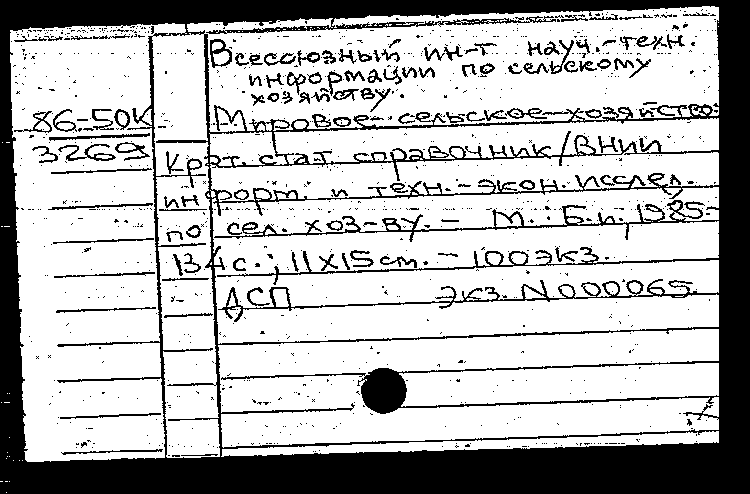 Всесоюзный ин-т науч.-техн.
информации по сельскому
хозяйству.
86-50К Мировое сельское хозяйство:
3269 Крат. стат. справочник/ВНИИ
информ. и техн.-экон. исслед.
по сел. хоз-ву. - М.: Б.и., 1985-
134 с.; 11X15 см. - 100 экз.
ДСП экз. N000065.